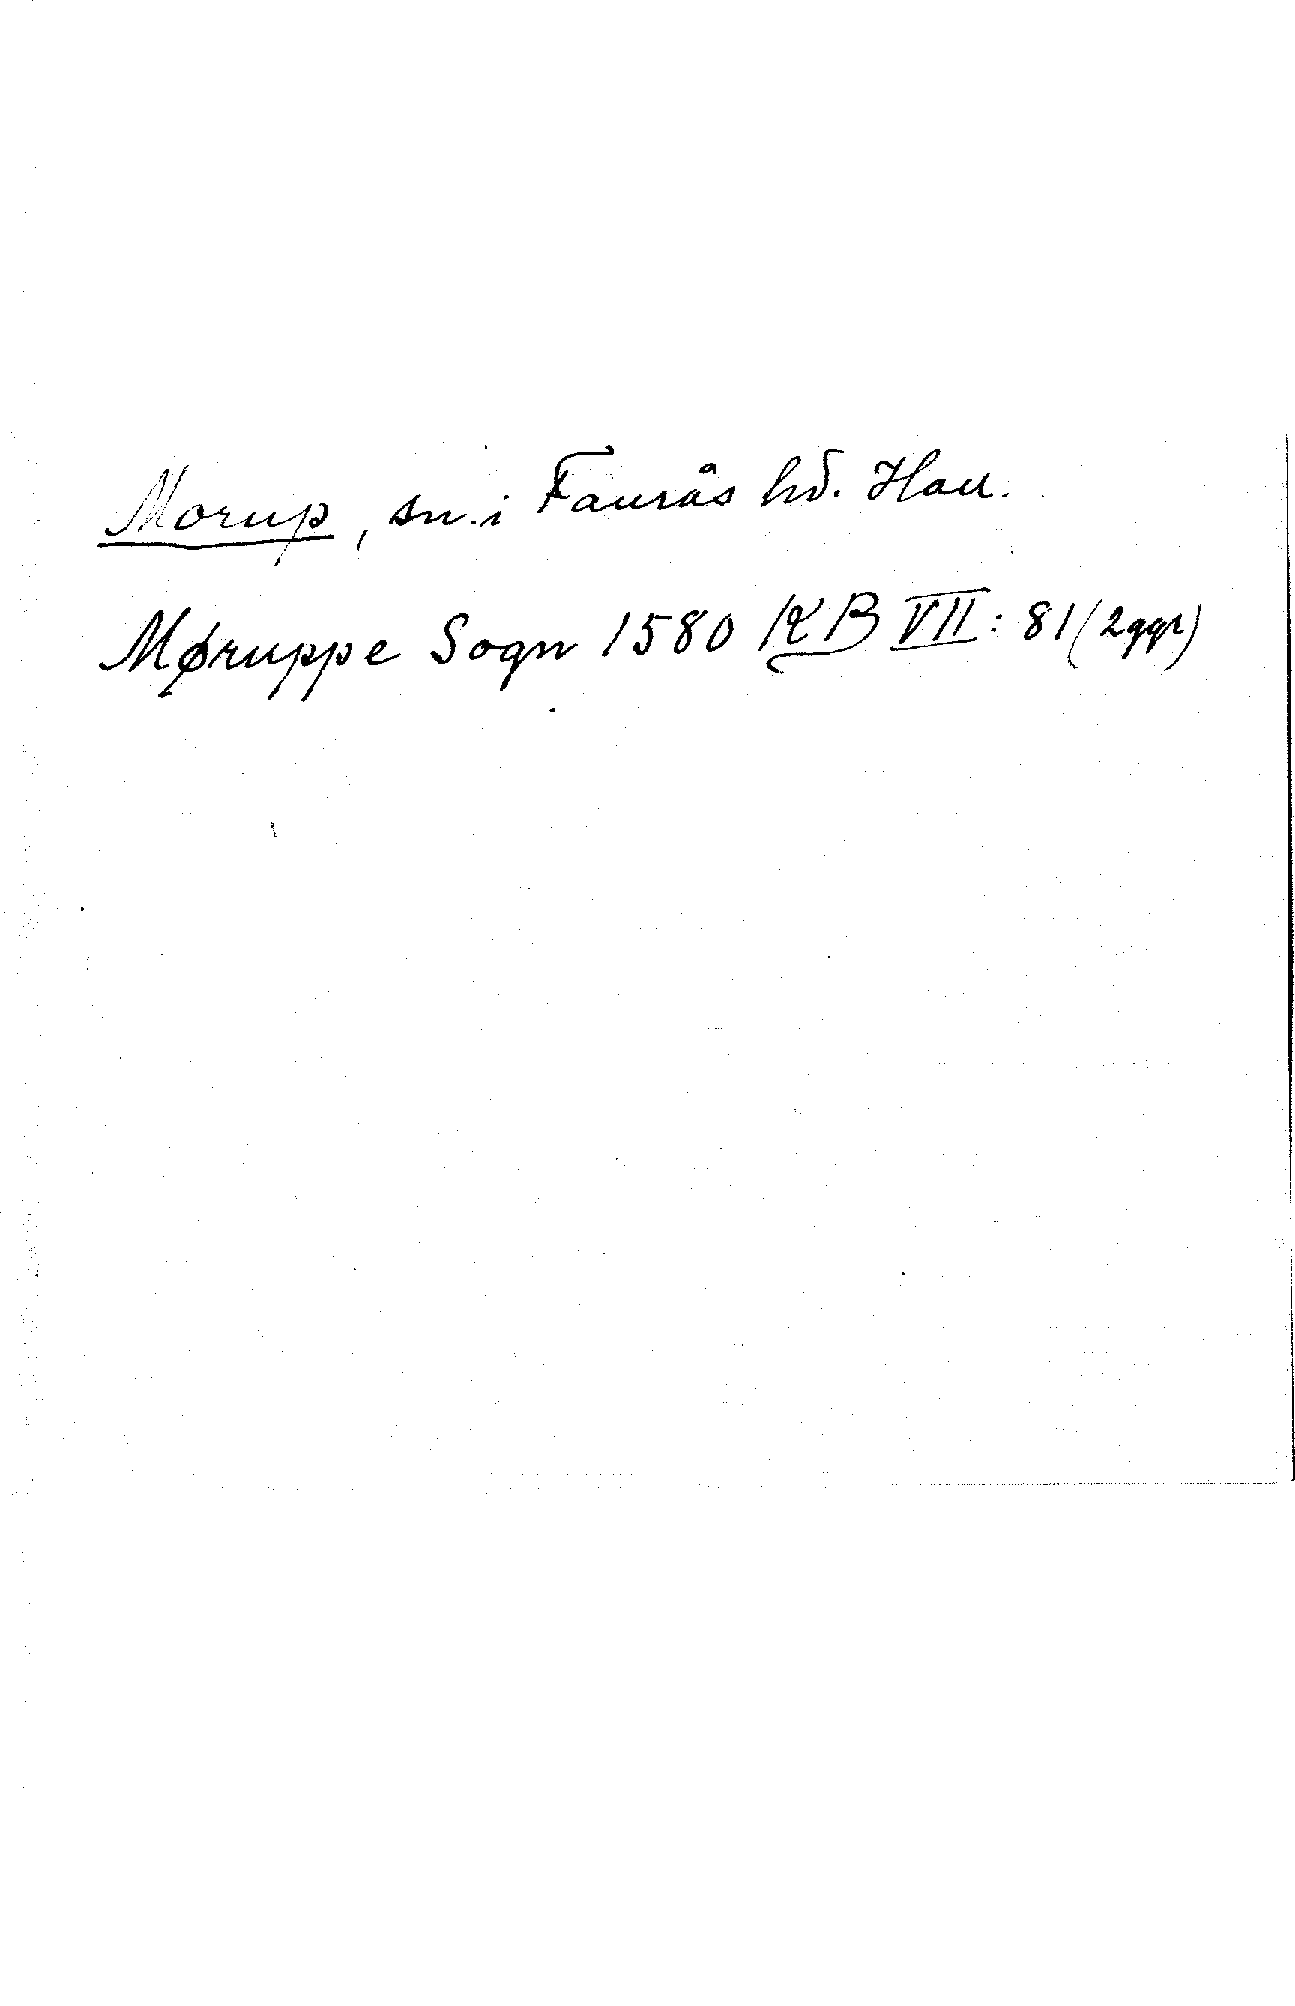 Morup, sn. i Faurås hd. Hall.
Møruppe Sogn 1580 KB VII: 81 (2ggr)